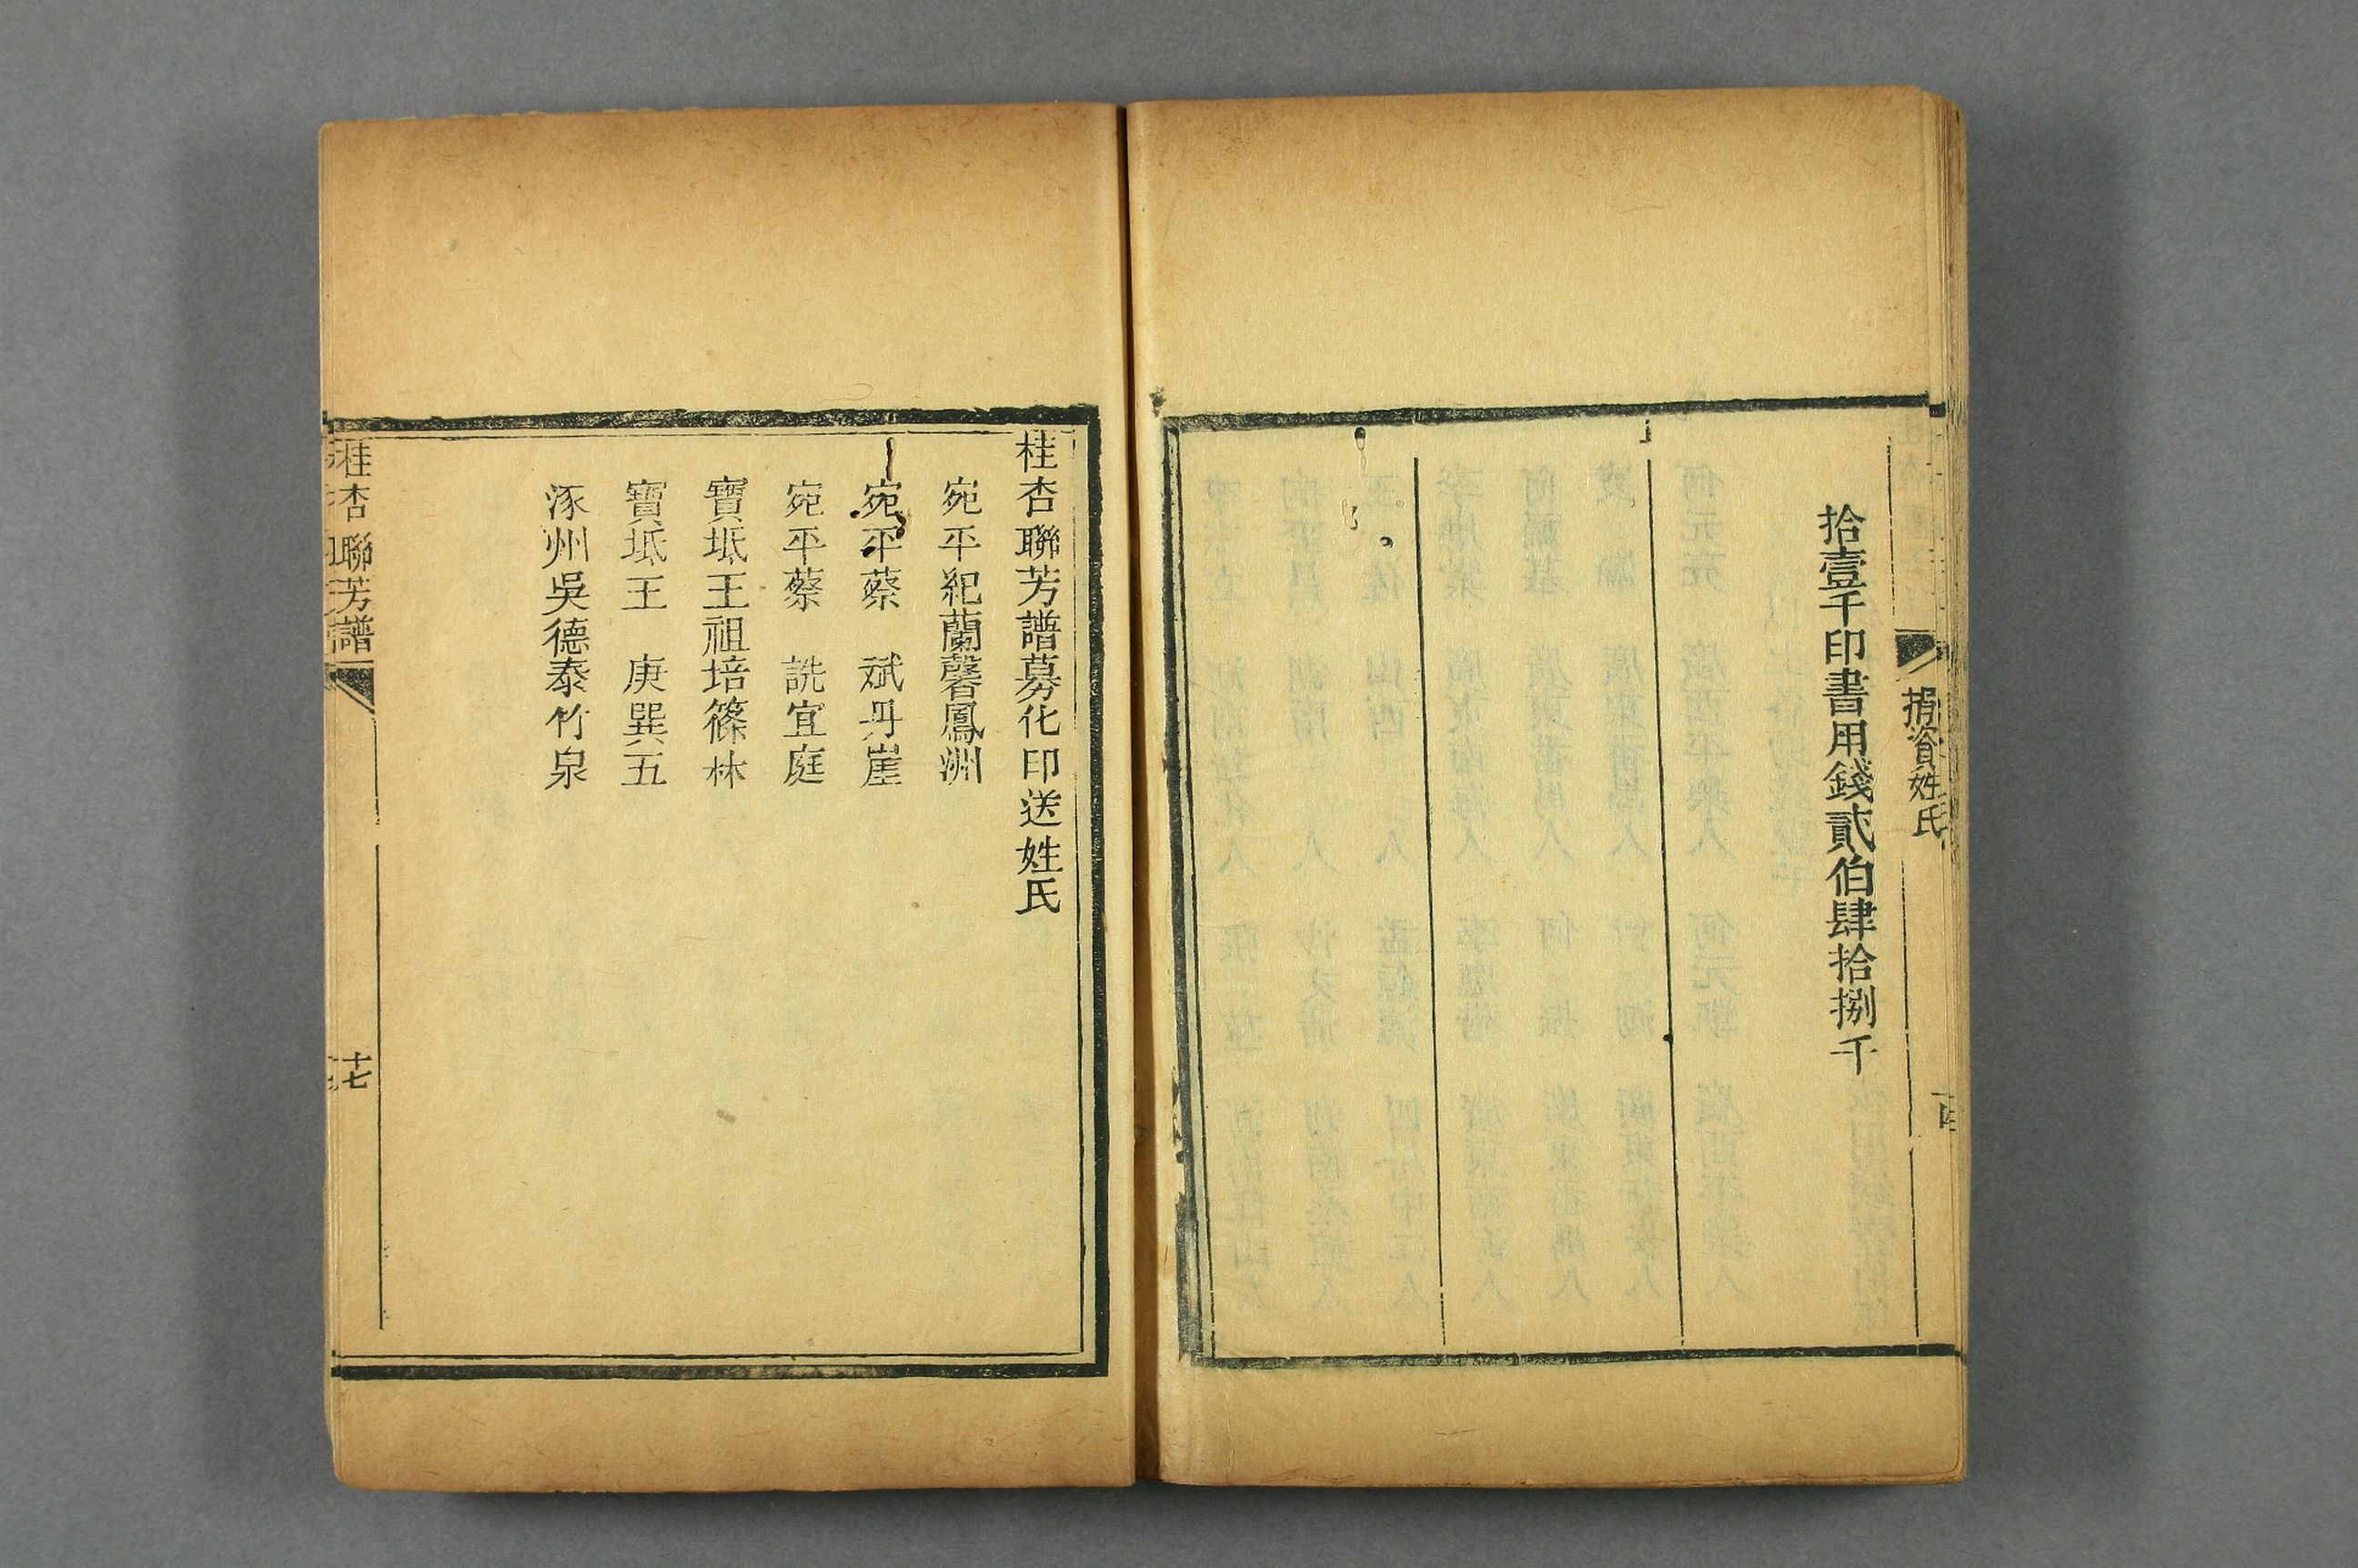 捐資姓氏
拾壹千印書用錢貳伯肆拾捌千
桂杏聯芳譜募化印送姓氏
宛平紀蘭馨鳳洲
宛平蔡　斌丹崖
宛平蔡　詵宜庭
寶坻王祖培篠林
寶坻王　庚巽五
涿州吳德泰竹泉
桂杏聯芳譜
十七